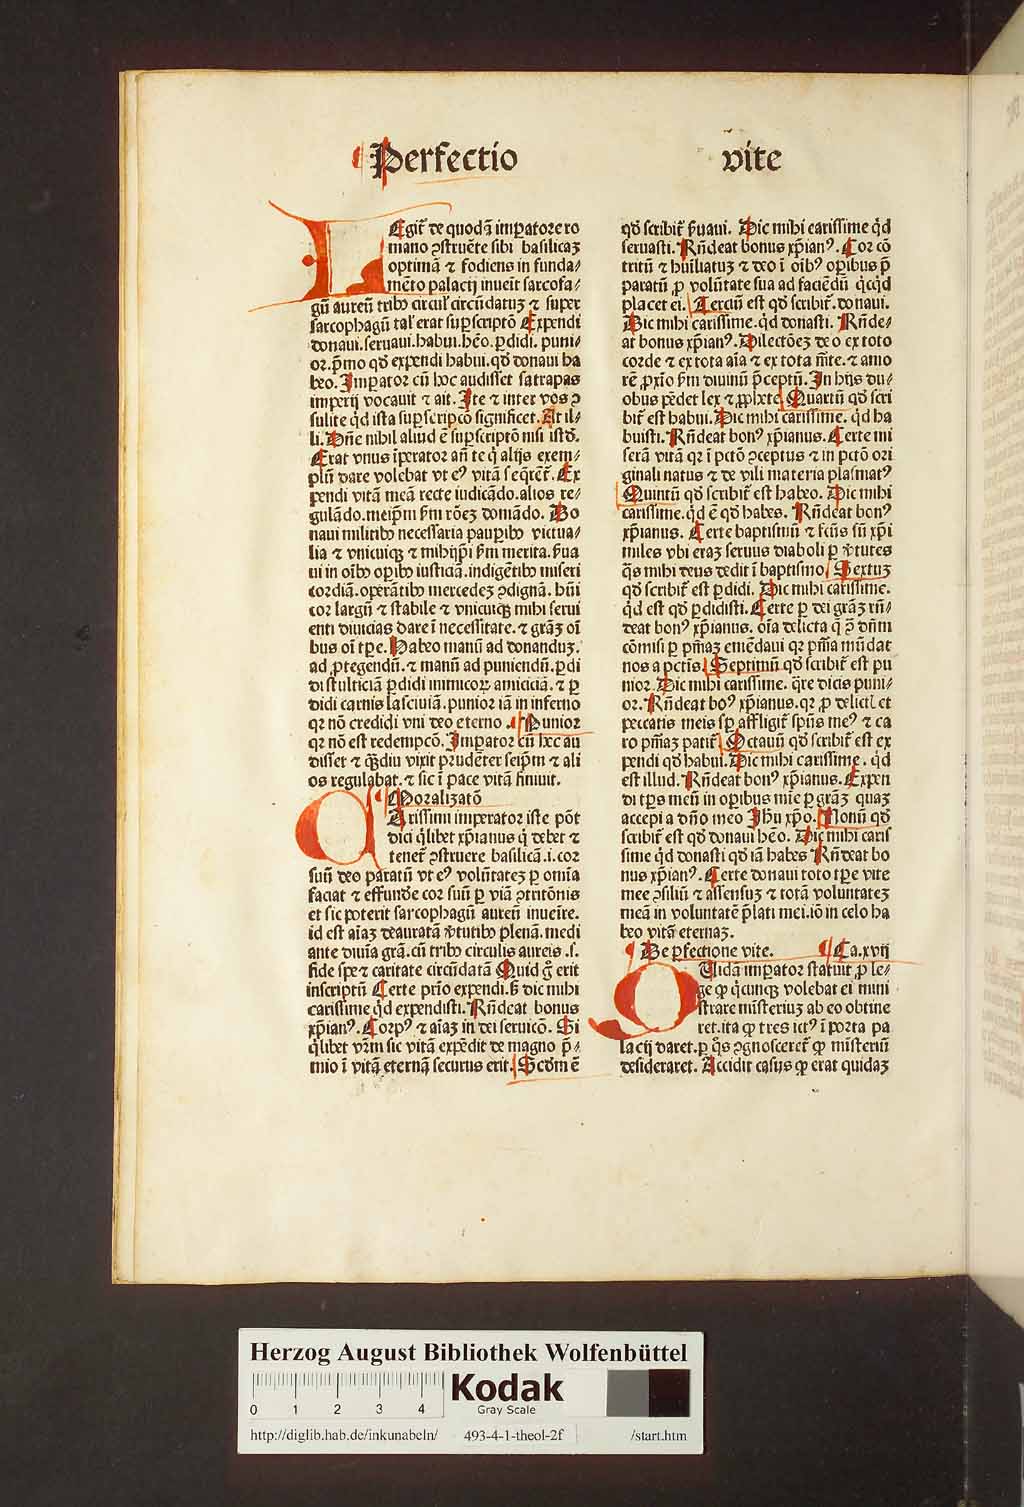 Perfectio vite
LEgit᷑ de quodā imꝑatore ro
mano ꝯstruēte sibi basilicaꝫ
optimā ⁊ fodiens in funda⸗
mēto palacij inueit sarcofa⸗
gū aureū tribꝰ circul᷑ circūdatuꝫ ⁊ super
sarcophagū tal᷑ erat suꝑscriptō Expendi
donaui. seruaui. habui. hēo. ꝑdidi. puni⸗
or. p̄mo qđ expendi habui. qđ donaui ha
beo. Imꝑator cū hoc audisset satrapas
imperij vocauit ⁊ ait. Ite ⁊ inter vos ꝯ
sulite qđ ista suꝑscripcō significet. At il⸗
li. Dn̄e nihil aliud ē suꝑscriptō nisi istđ.
Erat vnus īperator an̄ te q̇ alijs exem⸗
plū dare volebat vt eꝰ vitā seq̄ret᷑. Ex
pendi vitā meā recte iudicādo. alios re⸗
gulādo. meip̄m ẜm rōeꝫ domādo. Do
naui militibꝰ necessaria pauꝑibꝰ victua⸗
lia ⁊ vnicuiqꝫ ⁊ mihijp̄i ẜm merita. ẜua
ui in oībꝰ oꝑibꝰ iusticiā. indigētibꝰ miseri
cordiā. oꝑātibꝰ mercedeꝫ ꝯdignā. hūi
cor largū ⁊ stabile ⁊ vnicuiqꝫ mihi serui
enti diuicias dare ī necessitate. ⁊ gr̄aꝫ oī
bus oī tꝑe. Habeo manū ad donanduꝫ.
ad ꝓtegendū. ⁊ manū ad puniendū. ꝑdi
di stulticiā ꝑdidi inimicoꝝ amiciciā. ⁊ ꝑ
didi carnis lasciuiā. punior iā in inferno
qr nō credidi vni deo eterno. ¶ Punior
qr nō est redempcō. Imꝑator cū hec au
disset ⁊ qꝫdiu vixit prudēter seip̄m ⁊ ali
os regulabat. ⁊ sic ī pace vitā finiuit.
¶ Moralizatō
CArissimi imperator iste pōt
dici q̇libet xp̄ianus q̇ debet ⁊
tenet᷑ ꝯstruere basilicā .i. cor
suū deo paratū vt eꝰ volūtateꝫ ꝑ omīa
faciat ⁊ effunde cor suū ꝑ viā ꝯtritōnis
et sic poterit sarcophagū aureū inueire.
id est aīaꝫ deauratā v̓tutibꝰ plenā. medi
ante diuīa grā. cū tribꝰ circulis aureis .s.
fide spe ⁊ caritate circūdatā Quid g̊ erit
inscriptū Certe prīo expendi. ẜ dic mihi
carissime qđ expendisti. Rn̄deat bonus
xp̄ianꝰ. Corpꝰ ⁊ aīaꝫ in dei seruicō. Si
q̇libet vr̄m sic vitā expēdit de magno p̄⸗
mio ī vitā eternā securus erit. Scd̄m ē
qđ scribit᷑ ẜuaui. Dic mihi carissime qđ
seruasti. Rn̄deat bonus xp̄ianꝰ. Cor cō
tritū ⁊ hūiliatuꝫ ⁊ deo ī oībꝰ oꝑibus p̄
paratū ꝓ volūtate sua ad faciēdū qͥcqͥd
placet ei. Terciū est qđ scribit᷑. donaui.
Dic mihi carissime. qđ donasti. Rn̄de⸗
at bonus xp̄ianꝰ. Dilectōeꝫ deo ex toto
corde ⁊ ex tota aīa ⁊ ex tota mēte. ⁊ amo
rē ꝓxīo ẜm diuinū p̄ceptū. In hijs du⸗
obus pēdet lex ⁊ ꝓphete. Quartū qđ scri
bit᷑ est habui. Dic mihi carissime. qđ ha
buisti. Rn̄deat bonꝰ xp̄ianus. Certe mi
serā vitā qr ī pctō ꝯceptus ⁊ in pctō ori
ginali natus ⁊ de vili materia plasmatꝰ
Quintū qđ scribit᷑ est habeo. Dic mihi
carissime. qđ ē qđ habes. Rn̄deat bonꝰ
xp̄ianus. Certe baptismū ⁊ fcūs sū xp̄i
miles vbi eraꝫ seruus diaboli ꝑ v̓tutes
q̄s mihi deus dedit ī baptismo. Sextuꝫ
qđ scribit᷑ est ꝑdidi. Dic mihi carissime.
qđ est qđ ꝑdidisti. Certe ꝑ dei gr̄aꝫ rn̄⸗
deat bonꝰ xp̄ianus. oīa delicta q̄ ꝯ̄ dn̄m
cōmisi ꝑ pn̄iaꝫ emēdaui qr pn̄ia mūdat
nos a pctīs. Septimū qđ scribit᷑ est pu
nior. Dic mihi carissime. q̄re dicis puni⸗
or. Rn̄deat boꝰ xp̄ianus. qr ꝓ delict᷑ et
peccatis meis sꝑ affligit᷑ spūs meꝰ ⁊ ca
ro pn̄iaꝫ patit᷑ Octauū qđ scribit᷑ est ex
pendi qđ habui. Dic mihi carissime. qđ
est illud. Rn̄deat bonꝰ xp̄ianus. Expen
di tp̄s meū in oꝑibus mīe ꝑ gr̄aꝫ quaꝫ
accepi a dn̄o meo Ihū xp̄o. Nonū qđ
scribit᷑ est qđ donaui hēo. Dic mihi caris
sime qđ donasti qđ iā habes Rn̄deat bo
nus xp̄ianꝰ. Certe donaui toto tꝑe vite
mee ꝯsiliū ⁊ assensuꝫ ⁊ totā voluntateꝫ
meā in voluntatē p̄lati mei. iō in celo ha
beo vitā eternaꝫ.
¶ De ꝑfectione vite. ¶ Ca. xvij
QUidā imꝑator statuit ꝓ le⸗
ge ꝙ q̇cunqꝫ volebat ei mini
strare misteriuꝫ ab eo obtine
ret. ita ꝙ tres ictꝰ ī porta pa
lacij daret. ꝑ q̊s ꝯgnosceret᷑ ꝙ misteriū
desideraret. Accidit casus ꝙ erat quidaꝫ
Herzog August Bibliothek Wolfenbüttel
0 1 2 3 4
Kodak
Gray Scale
http://diglib.hab.de/inkunabeln/ 493-4-1-theol-2f /start.htm